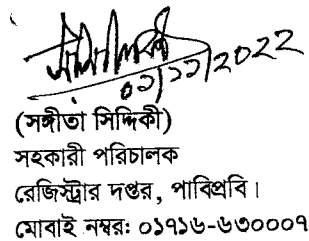 ০১/১১/২০২২
(সঙ্গীতা সিদ্দিকী)
সহকারী পরিচালক
রেজিস্ট্রার দপ্তর, পাবিপ্রবি।
মোবাইল নম্বর: ০১৭১৬-৬৩০০০৭